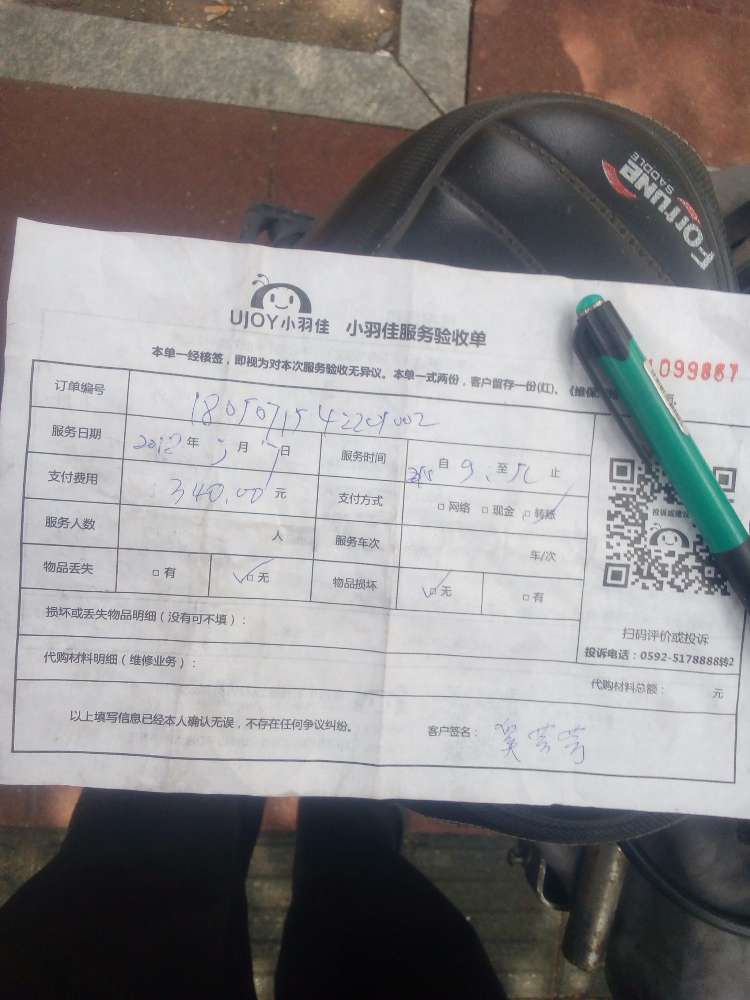 FORTUNE
SADDLE
UJOY小羽佳 小羽佳服务验收单
1099867
本单一经核签，即视为对本次服务验收无异议。本单一式两份，客户留存一份(红)、《维保
订单编号 1805071542201002
服务日期 年 月 日 服务时间 自 9: 至 止
支付费用 340.00 元 支付方式 □网络 □现金 □转账
投诉或建议
服务人数 人 服务车次 车/次
物品丢失 □有 □无 物品损坏 □无 □有
损坏或丢失物品明细（没有可不填）：
扫码评价或投诉
投诉电话：0592-5178888转2
代购材料明细（维修业务）： 代购材料总额： 元
以上填写信息已经本人确认无误，不存在任何争议纠纷。 客户签名：